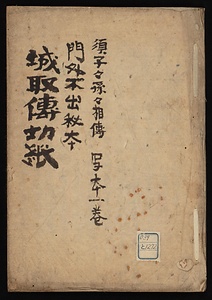 須子々孫々相傳 写本一巻
門外不出秘本
城取傳切紙